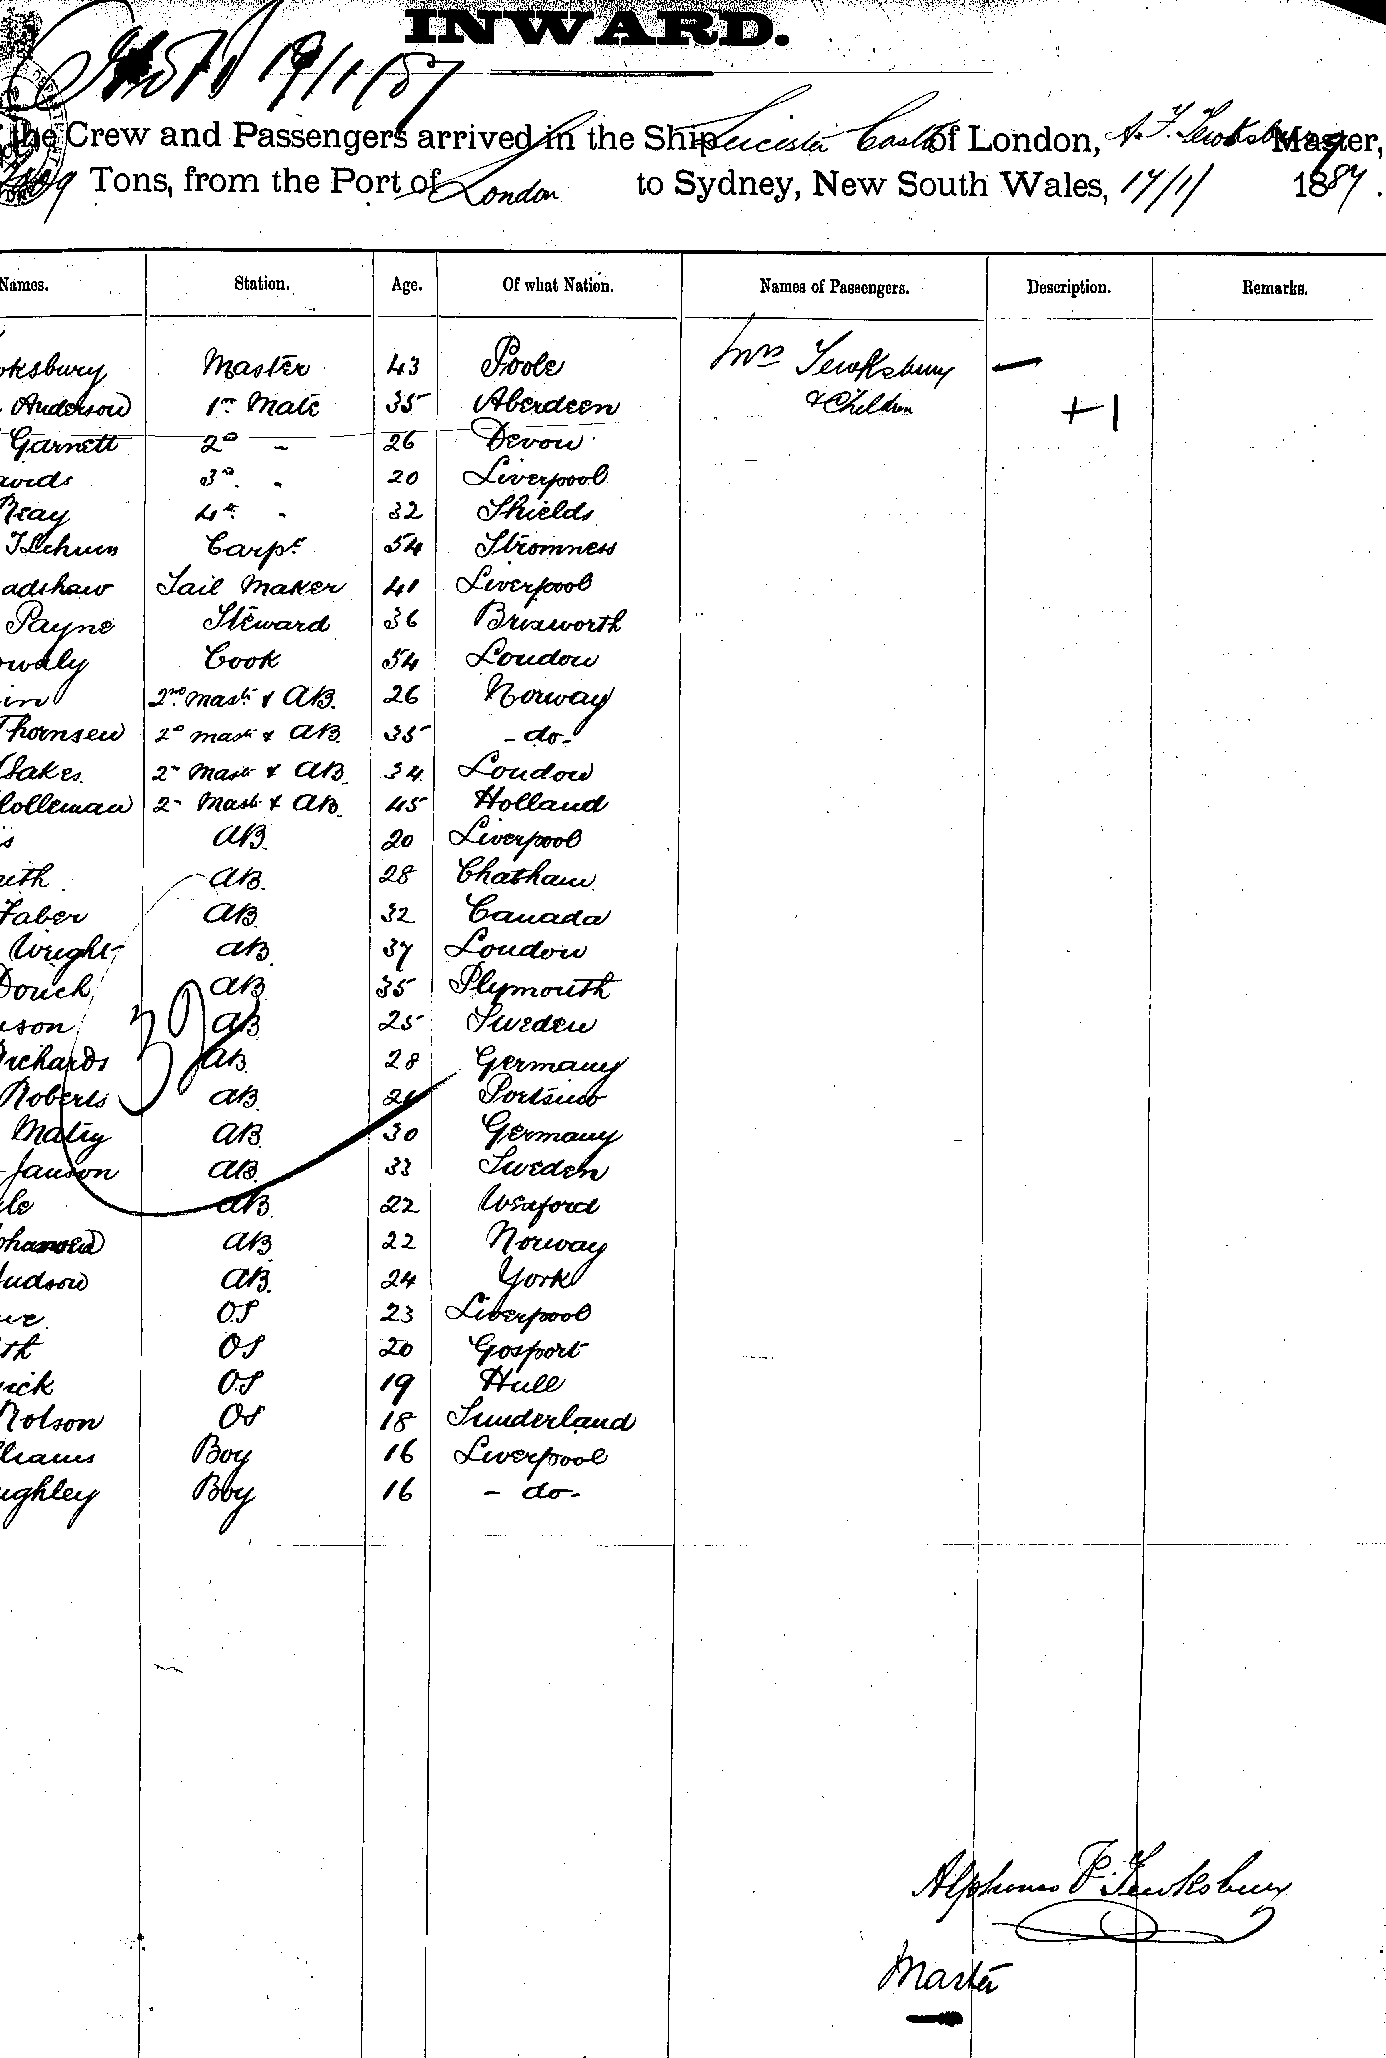 INWARD.
19/1/87
the Crew and Passengers arrived in the Ship Leicester Castle of London, A. F. Tewksbury Master,
Tons, from the Port of London to Sydney, New South Wales, 17/1/ 1887.
Names. Station. Age. Of what Nation. Names of Passengers. Description. Remarks.
ksbury Master 43 Poole Mrs Tewksbury —
Anderson 1st Mate 35 Aberdeen & Children + 1
Garnett 2d - 26 Devon
avids 3d - 20 Liverpool
Reay 4th - 32 Shields
Carpr 54 Stromness
adshaw Sail Maker 41 Liverpool
Payne Steward 36 Brixworth
owdly Cook 54 London
in 2nd Mast & AB. 26 Norway
Thornsen 2d mast & AB. 35 - do -
Oakes. 2nd Mast & AB. 34 London
olleman 2- Mast & AB. 45 Holland
s AB. 20 Liverpool
ith AB. 28 Chatham
Faber AB. 32 Canada
Wright AB. 37 London
Douch AB 35 Plymouth
nson AB 25 Sweden
Richards AB. 28 Germany
Roberts AB. Portsmo
Matzy AB. 30 Germany
Janson AB. 33 Sweden
le AB. 22 Wexford
ohansen AB 22 Norway
udson AB. 24 York
we OS 23 Liverpool
th OS 20 Gosport
ick OS 19 Hull
Rolson OS 18 Sunderland
lliams Boy 16 Liverpool
ughley Boy 16 - do -
32
Alphonso F. Tewksbury
Master